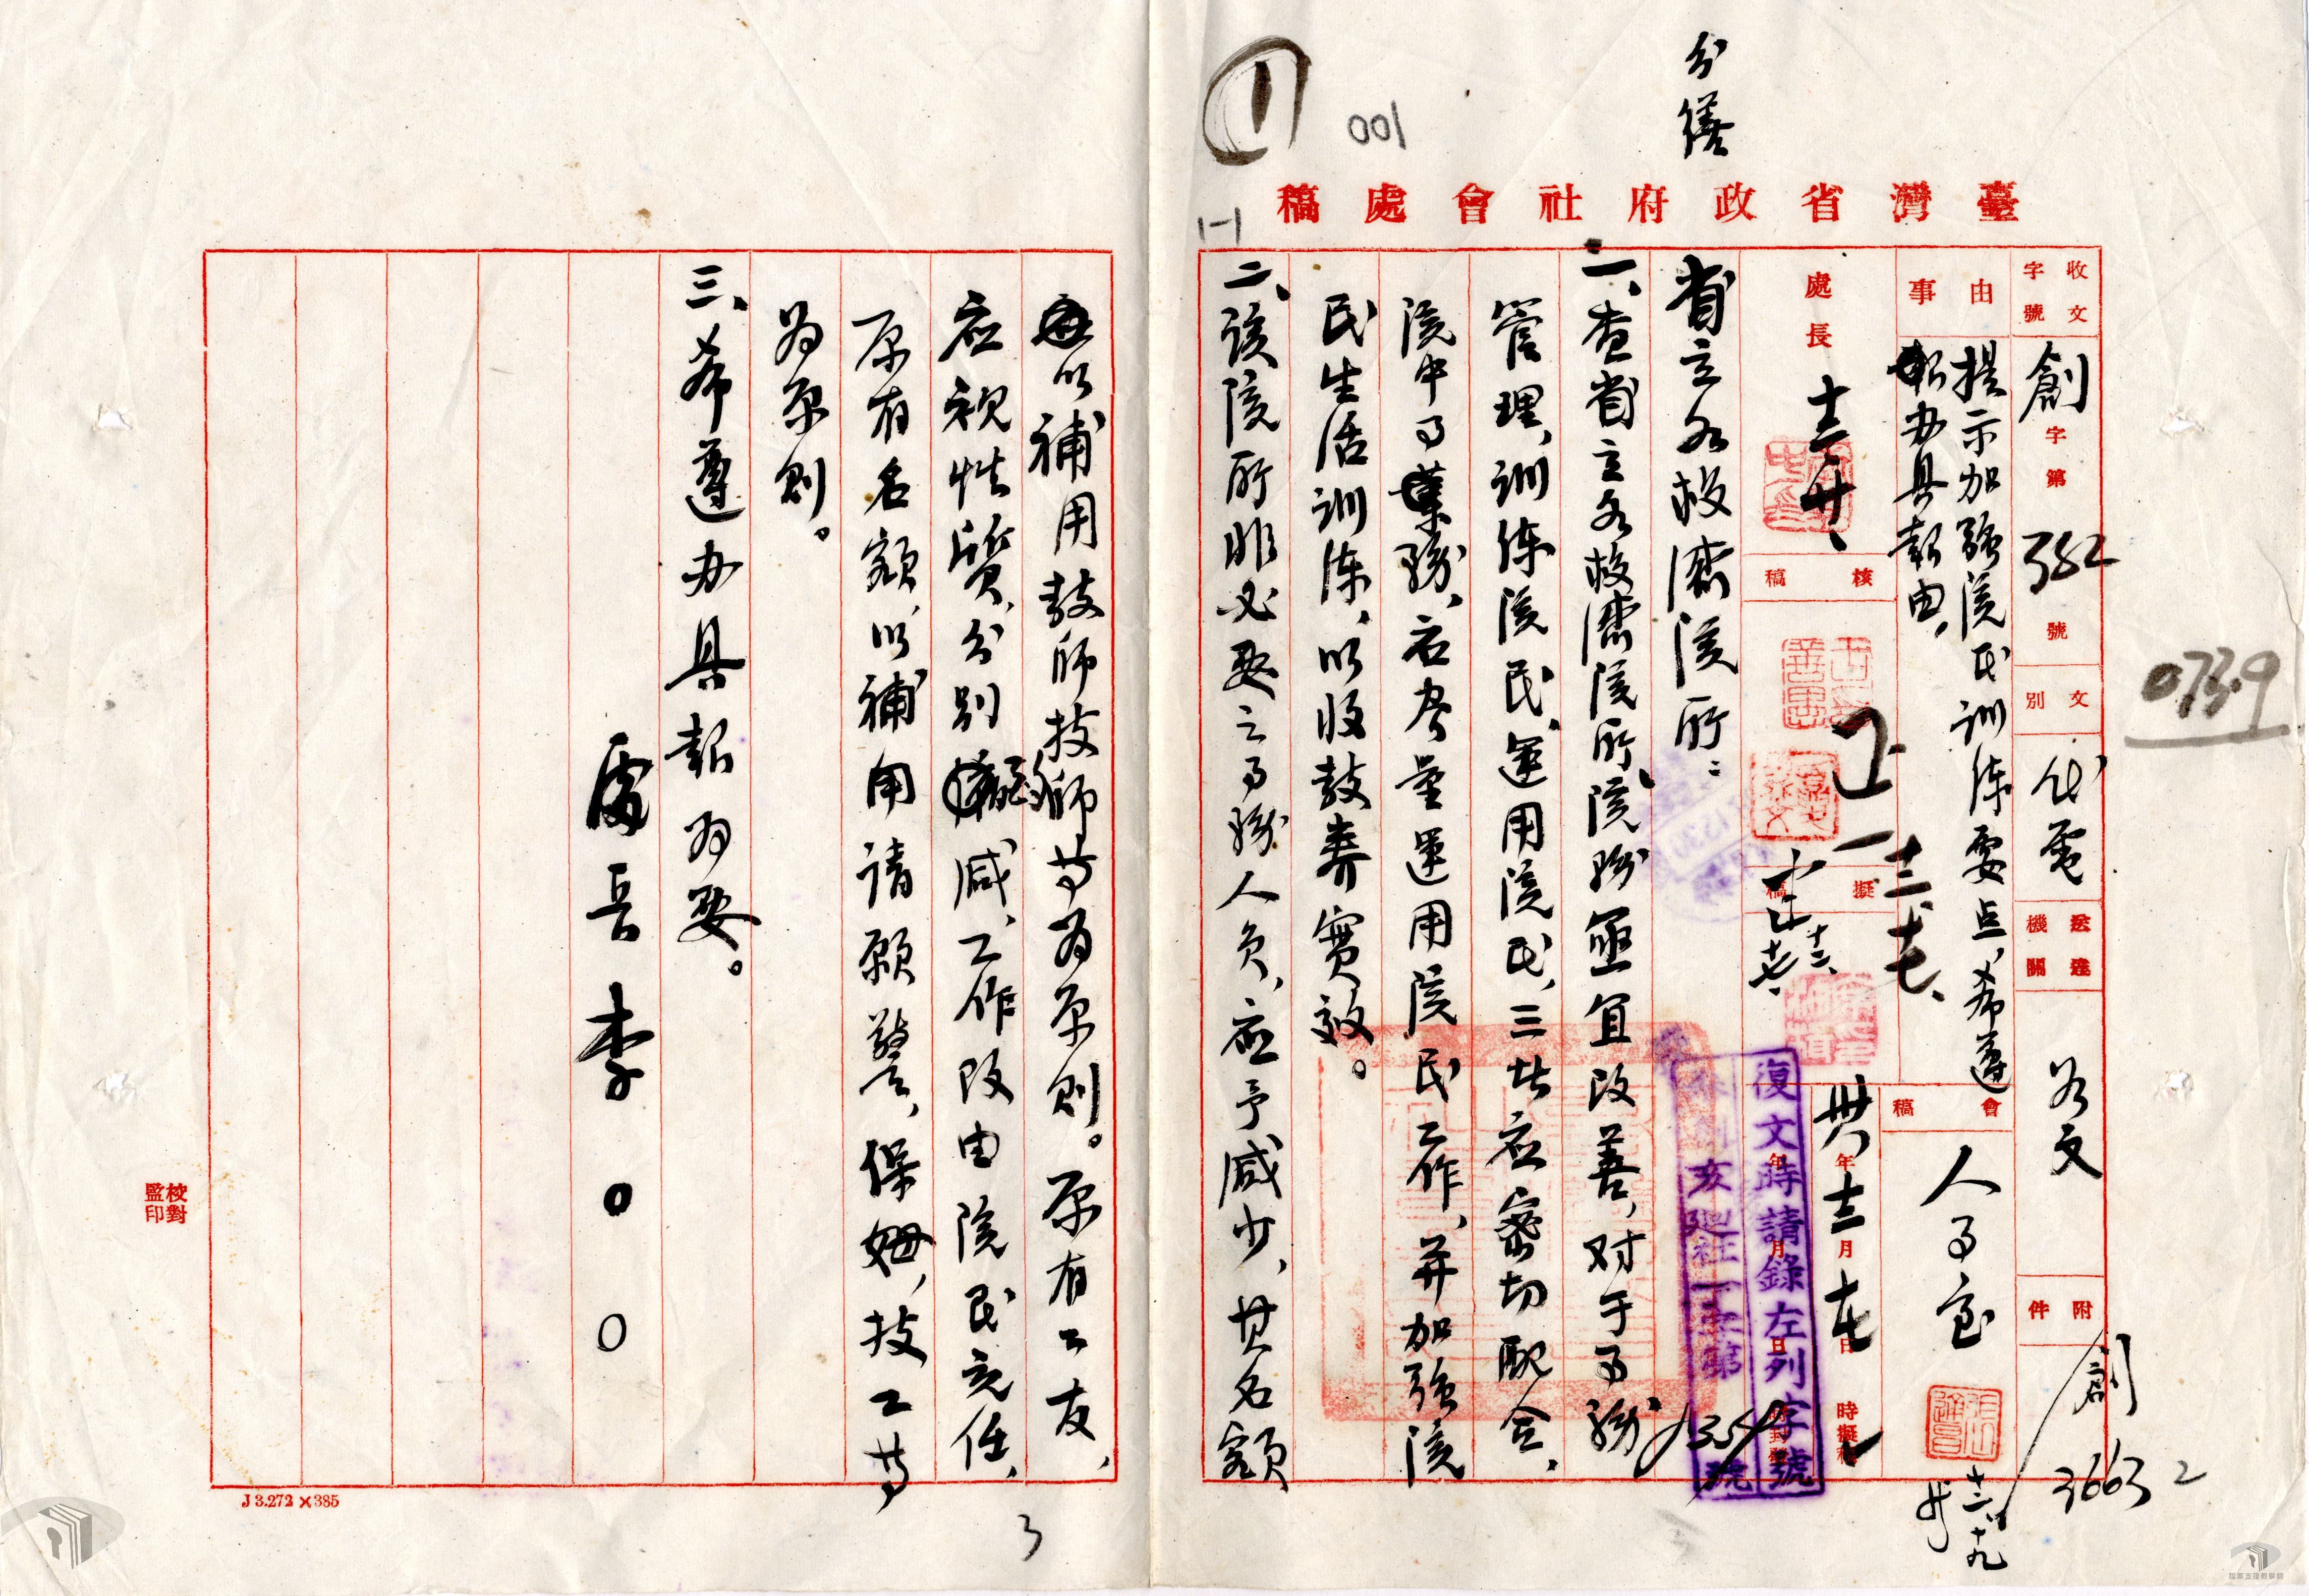 分繕
001
1-1
臺灣省政府社會處稿
收文字號
創字第382號
文別
代電
送達機關
分文
附件
創 3663 2
事由
提示加強院民訓練要点,希遵
办具報由。
會稿
人事室
十二、十九
處長
核稿
擬稿
卅八年十二月十七日 時擬稿
復文時請錄左列字號
亥 社一字第1354號
0739
省立各救濟院所:
一、查省立各救濟院所,院務亟宜改善,对于事務
管理、訓练院民、運用院民,三者应密切配合,
院中事務,应尽量運用院民工作,并加強院
民生活訓练,以收教養實效。
二、該院所非必要之事務人員,应予减少,其名額
以補用教师技師等为原則。原有工友,
应視性質,分别减,工作改由院民充任,
原有名額以補用請願警,保姆,技工等
为原則。
三、希遵办具報为要。
處長李〇〇
校對
監印
J 3.272×385
3